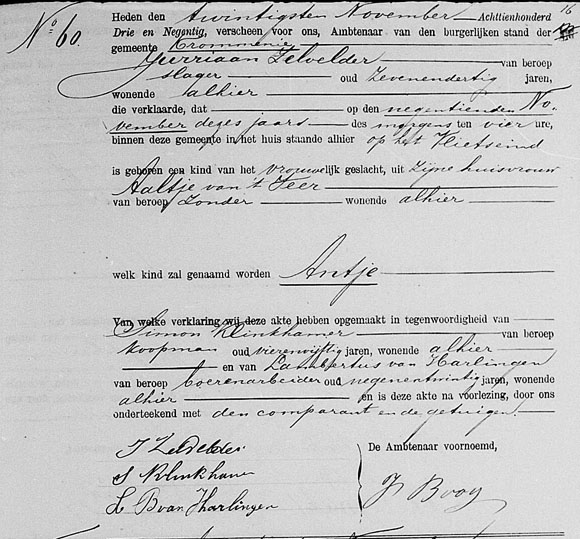 16
No 60.
Heden den twintigsten November Achttienhonderd
Drie en Negentig, verscheen voor ons, Ambtenaar van den burgerlijken stand der
gemeente Krommenie
Jurriaan Zelvelder van beroep
slager oud zevenendertig jaren,
wonende alhier
die verklaarde, dat op den negentienden No-
vember dezes jaars des morgens ten vier ure,
binnen deze gemeente in het huis staande alhier op het Vlietseind
is geboren een kind van het vrouwelijk geslacht, uit zijne huisvrouw
Aaltje van 't Veer
van beroep zonder wonende alhier
welk kind zal genaamd worden Antje
Van welke verklaring wij deze akte hebben opgemaakt in tegenwoordigheid van
Simon Klinkhamer van beroep
koopman oud vierenvijftig jaren, wonende alhier
en van Lambertus van Harlingen
van beroep boerenarbeider oud negenentwintig jaren, wonende
alhier en is deze akte na voorlezing, door ons
onderteekend met den comparant en de getuigen.
J Zelvelder
S Klinkhamer
L B van Harlingen
De Ambtenaar voornoemd,
J Booy